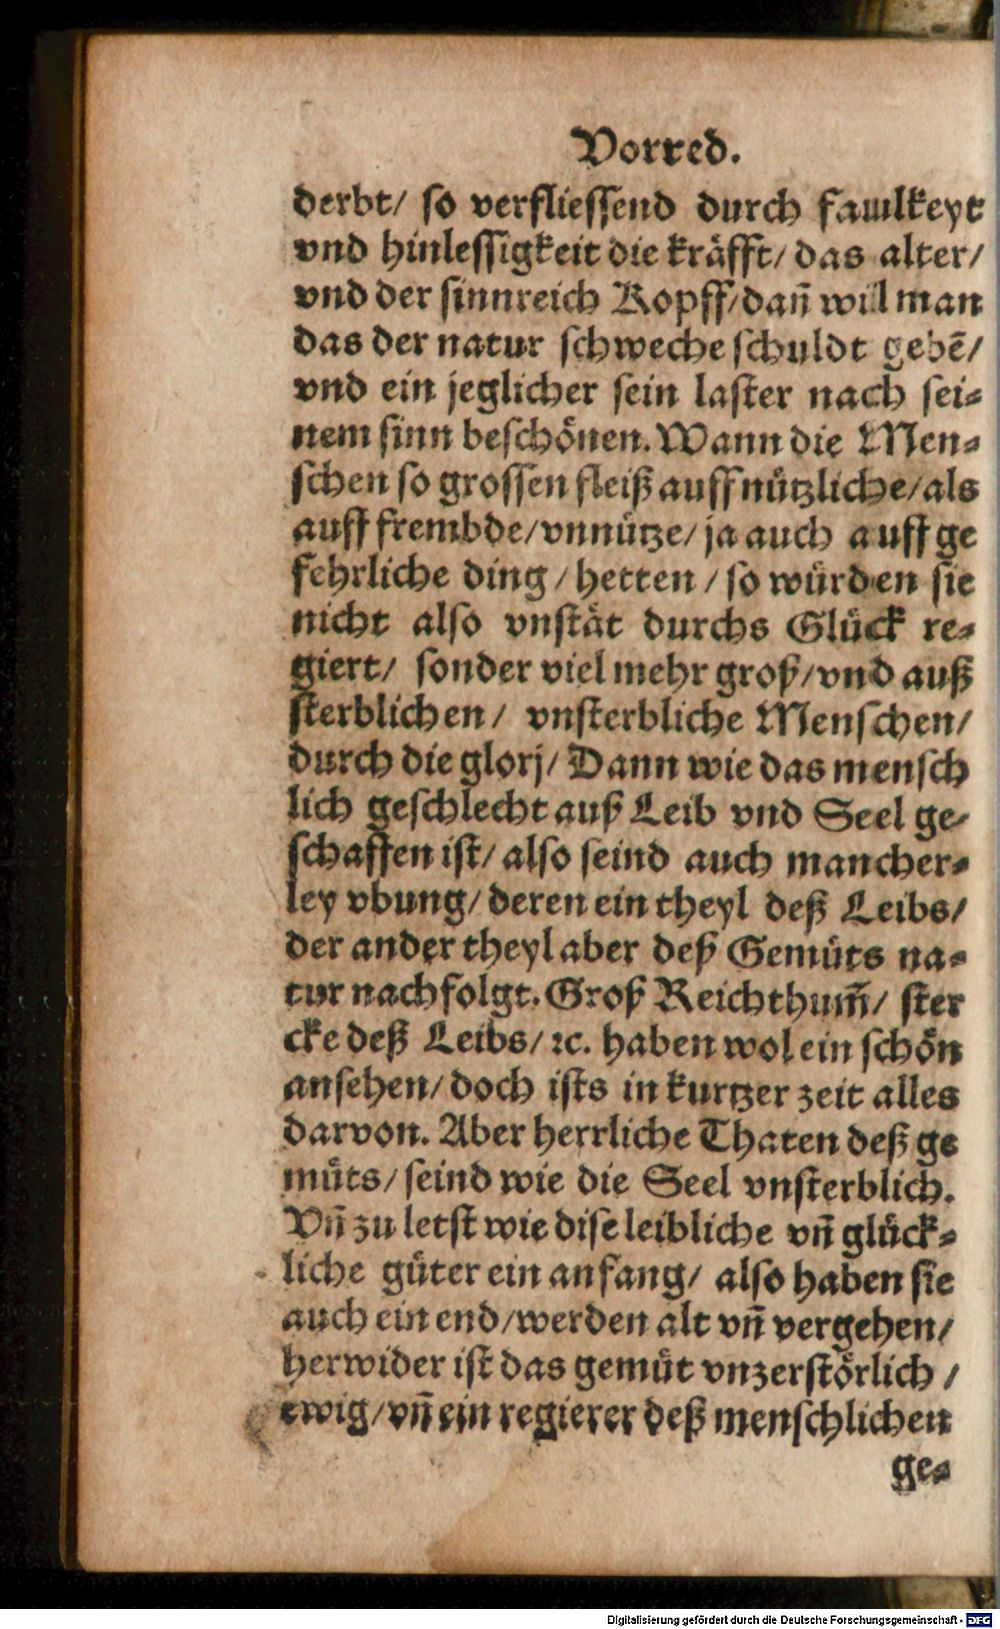 Vorred.
derbt/ so verfliessend durch faulkeyt
vnd hinlessigkeit die kräfft/ das alter/
vnd der sinnreich Kopff/ dañ will man
das der natur schweche schuldt gebē/
vnd ein jeglicher sein laster nach sei-
nem sinn beschönen. Wann die Men-
schen so grossen fleiß auff nützliche/ als
auff frembde/ vnnütze/ ja auch auff ge
fehrliche ding/ hetten/ so würden sie
nicht also vnstät durchs Glück re-
giert/ sonder viel mehr groß/ vnd auß
sterblichen/ vnsterbliche Menschen/
durch die glorj/ Dann wie das mensch
lich geschlecht auß Leib vnd Seel ge-
schaffen ist/ also seind auch mancher-
ley vbung/ deren ein theyl deß Leibs/
der ander theyl aber deß Gemüts na-
tur nachfolgt. Groß Reichthum̃/ ster
cke deß Leibs/ ꝛc. haben wol ein schön
ansehen/ doch ists in kurtzer zeit alles
darvon. Aber herrliche Thaten deß ge
müts/ seind wie die Seel vnsterblich.
Vñ zu letst wie dise leibliche vñ glück-
liche güter ein anfang/ also haben sie
auch ein end/ werden alt vñ vergehen/
herwider ist das gemüt vnzerstörlich/
ewig/ vñ ein regierer deß menschlichen
ge-
Digitalisierung gefördert durch die Deutsche Forschungsgemeinschaft - DFG